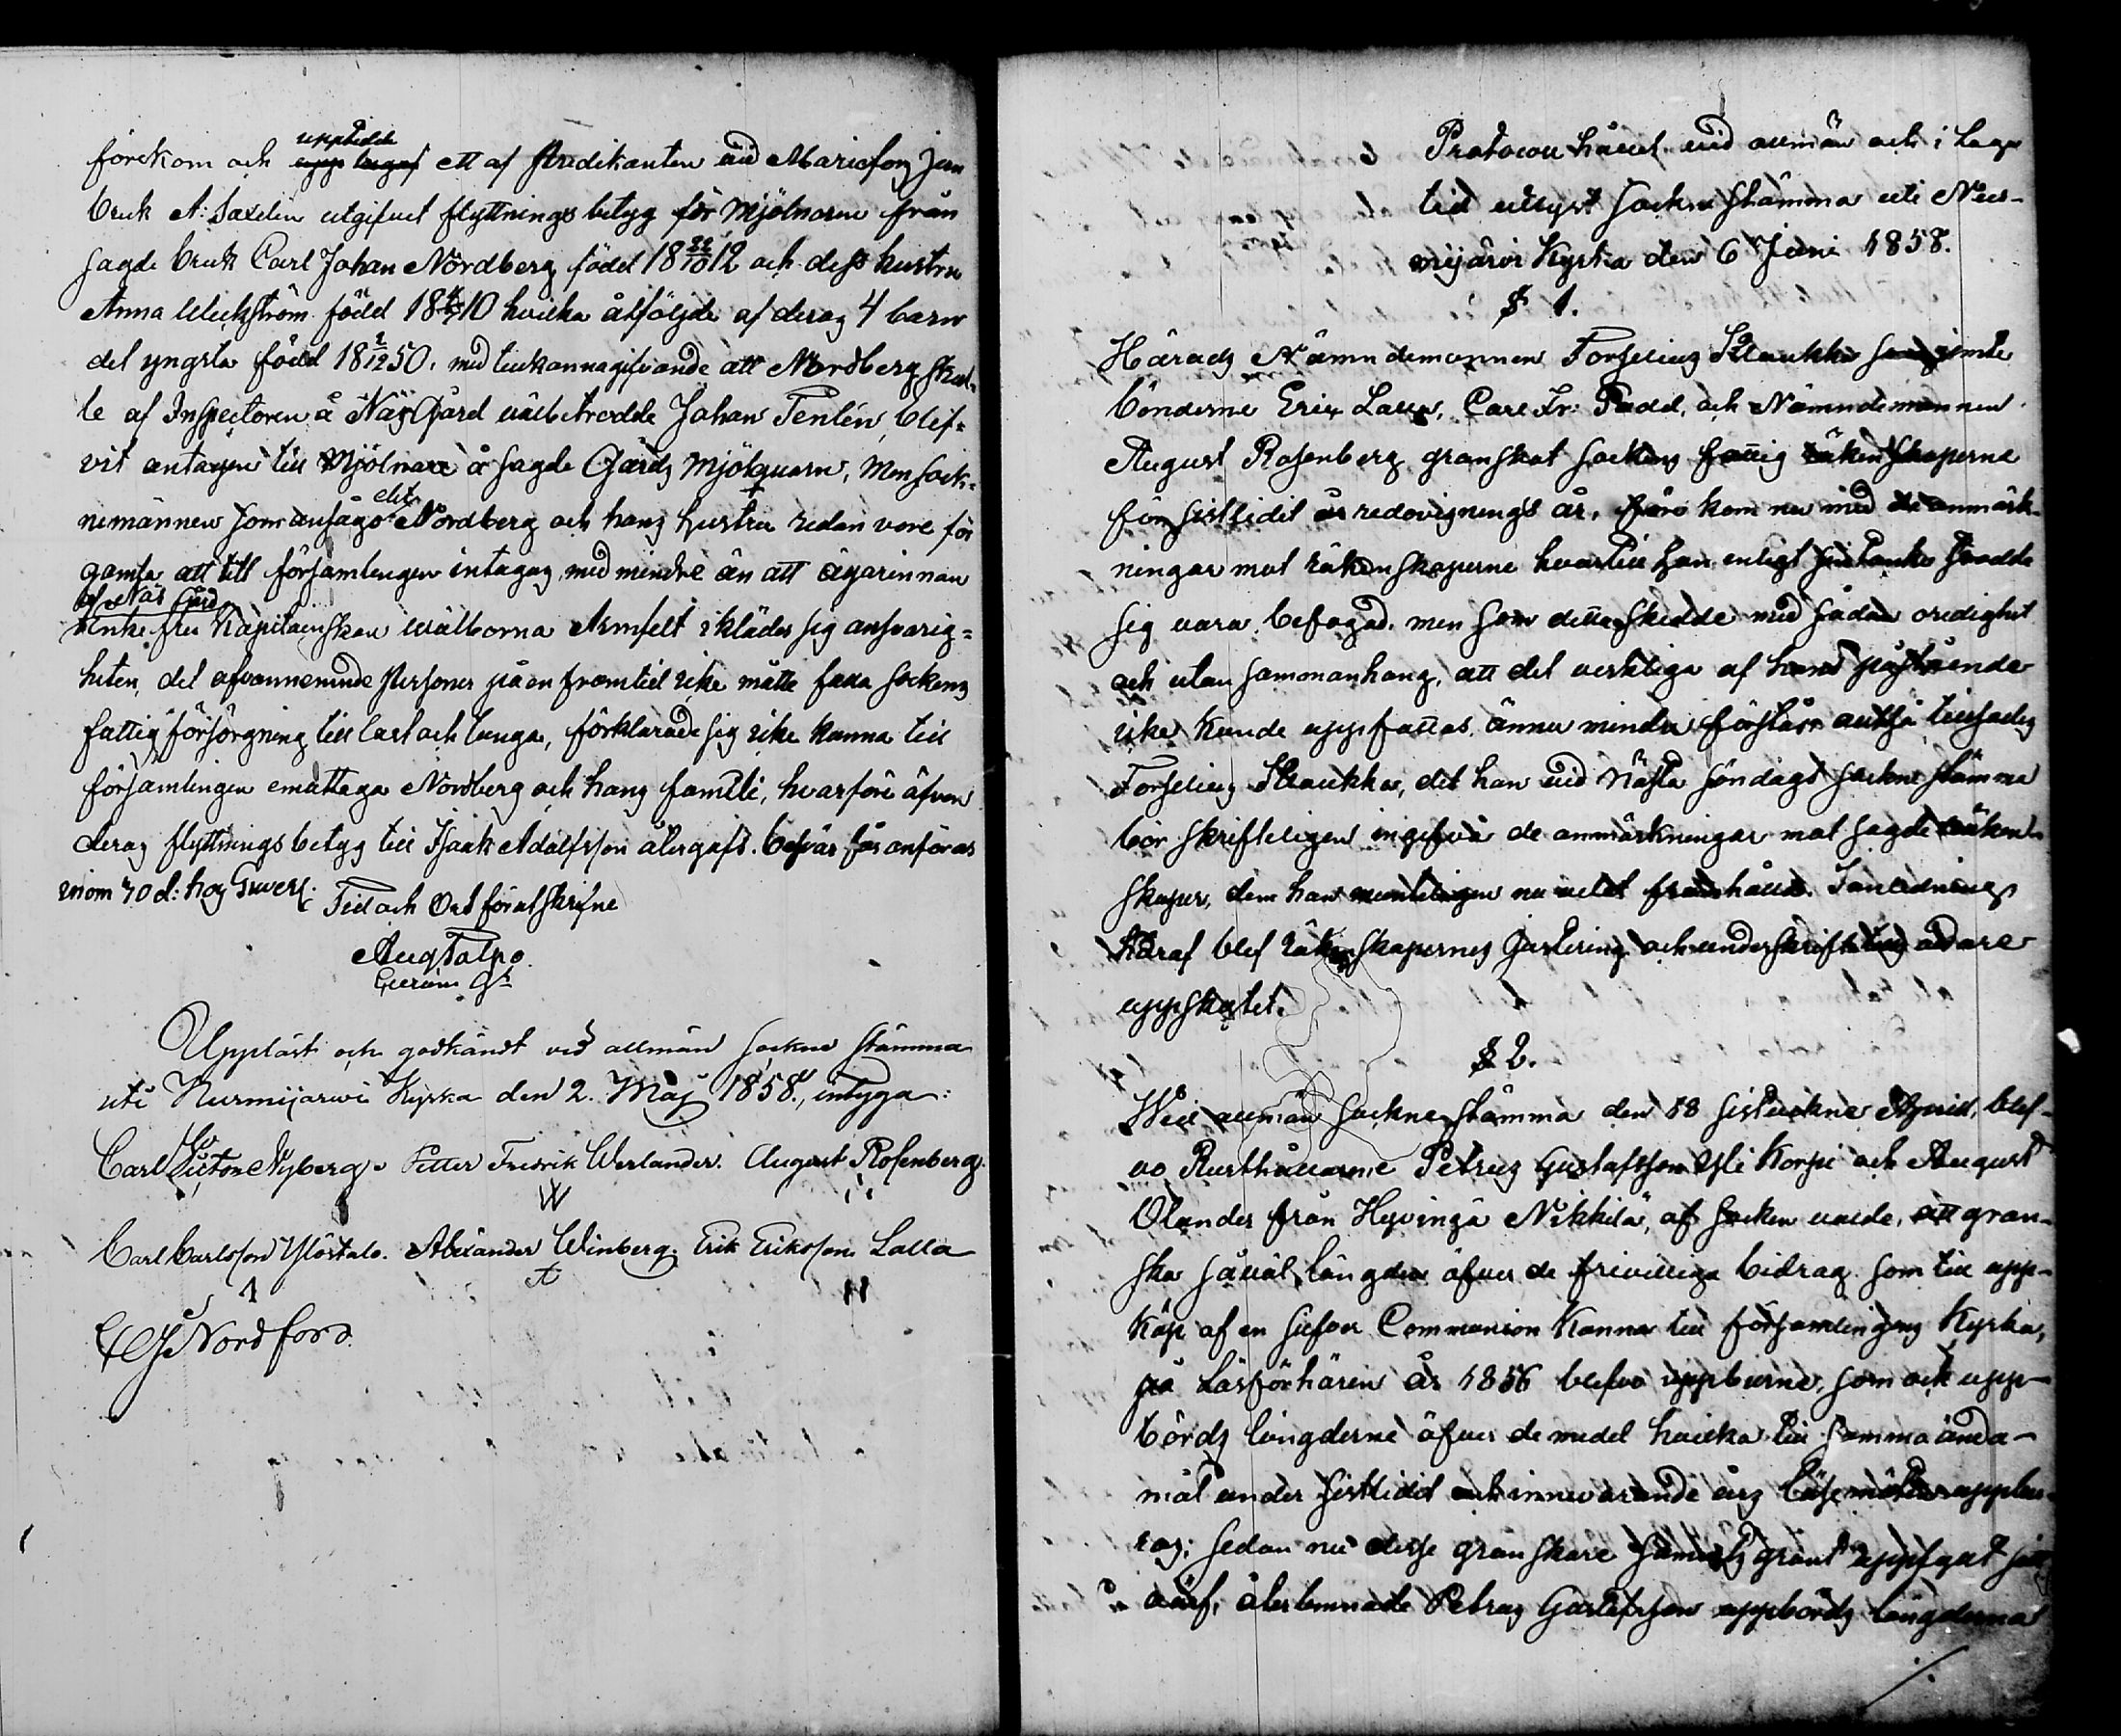 förekom och uppviste ett af Predikanten vid Mariefors Jern
bruk A: Saxelin utgifvet flyttningsbetyg för Mjölnaren från
sagde bruk Carl Johan Nordberg född 18 22/10 12 och dess hustru
Anna Weckström född 18 10 hvilka åtföljde af deras 4 barn
det yngsta född 18 2/12 50, med tillkännagifvande att Nordberg skul-
le af Inspectoren å Näs Gård välbetrodde Johan Tenlén, blif-
vit antagen till Mjölnare å sagde Gårds Mjölqvarn, Men Sock-
nemännen som ansågo det Nordberg och hans hustru redan vore för
gamla att till församlingen intagas, med mindre än att ägarinnan
af Näs Gård
Enke fru Kapitenskan wälborna Armfelt ikläder sig ansvarig-
heten, det ofvannämnde personer på en framtid icke måtte falla Sockens
fattigförsörgning till last och tunga, förklarade sig icke kunna till
församlingen emottaga Nordberg och hans familie, hvarföre äfven
deras flyttningsbetyg till Isaak Adolfsson återgafs. besvär får anföras
inom 30 d: hos Guvern:
Tid och Ort förutskrifne
Aug Talpo

Uppläst och godkändt vid allmän Sockne stämma
uti Nurmijärwi Kyrka den 2. Maj 1858., intyga:
Carl Victor Nyberg. Petter Fredrik Werlander. August Rosenberg.
Carl Carlsson Ylöstalo. Alexander Winberg. Erik Eriksson Lalla
A
G Nordfors.
Protocoll hållet vid allmän och i Laga
tid utlyst Sockne stämma uti Nur-
mijärvi Kyrka den 6 Juni 1858.
§ 1.
Härads Nämndemannen Forselius Klaukka jemte
bönderne Eric Lalla, Carl Fr: Padd, och Nämndemannen
August Rosenberg granskat Sockens fattig räkenskaperne
för sistlidit år redovisnings år, före kom nu med de anmärk-
ningar mot räkenskaperne hvartill han enligt sin tanke trodde
sig vara befogad, men som detta skedde med sådan oredighet
och utan sammanhang, att det verkliga af hans påstående
icke kunde uppfattas, ännu mindre förstås altså tillsades
Forselius Klaukka, det han vid nästa söndags Sockne stämma
bör skrifteligen ingifva de anmärkningar mot sagde räken-
skaper, dem han munteligen nu velat framhålla. I anledning
häraf blef räkenskapernes Justering och underskrift
uppskutet.
§ 2.
Wid allmän Sockne stämma den 18 sistvekne Aprill, blef-
vo Rusthållarne Petrus Gustafsson Yli Korpi och August
Olander från Hyvingä Nikkilä, af Socken valde, att gran-
ska såväl längden öfver de frivilliga bidrag som till upp-
köp af en silfver Communion Kanna till församlingens Kyrka,
på Läsförhören år 1856 blefvo uppburne, som ock upp-
börds längderne öfver de medel hvilka till samma ända-
mål under sistlidit och innevarande års läsemöten uppbu-
ros; sedan nu desse granskare
återlemnade Petrus Gustafsson uppbörds längderna